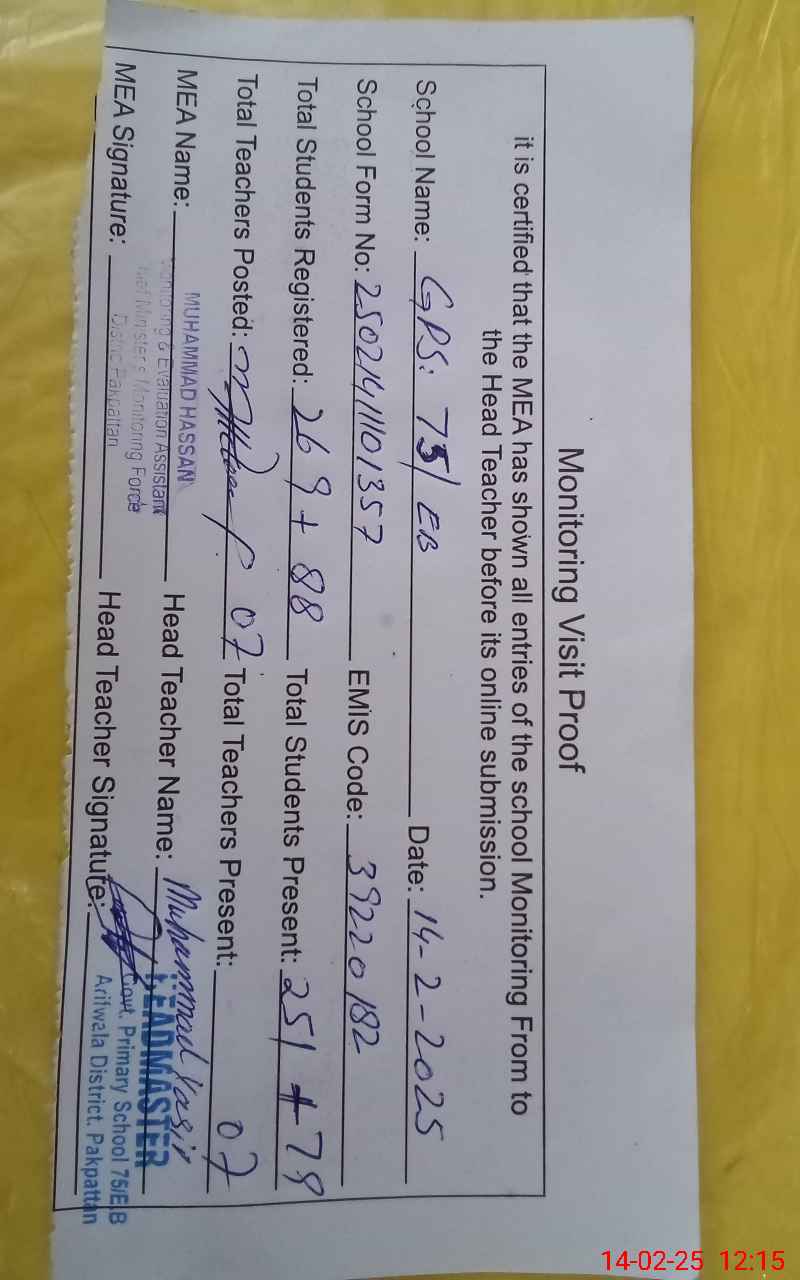 Monitoring Visit Proof
it is certified that the MEA has shown all entries of the school Monitoring From to
the Head Teacher before its online submission.
School Name: GPS: 75/EB Date: 14-2-2025
School Form No: 250214111101357 EMIS Code: 39220182
Total Students Registered: 269+88 Total Students Present: 251+79
Total Teachers Posted: 07 Total Teachers Present: 07
MEA Name: MUHAMMAD HASSAN Head Teacher Name: Muhammad Yasir
Monitoring & Evaluation Assistant
Chief Minister's Monitoring Force
District Pakpattan
MEA Signature: Head Teacher Signature:
HEADMASTER
Govt. Primary School 75/E.B
Arifwala District. Pakpattan
14-02-25 12:15